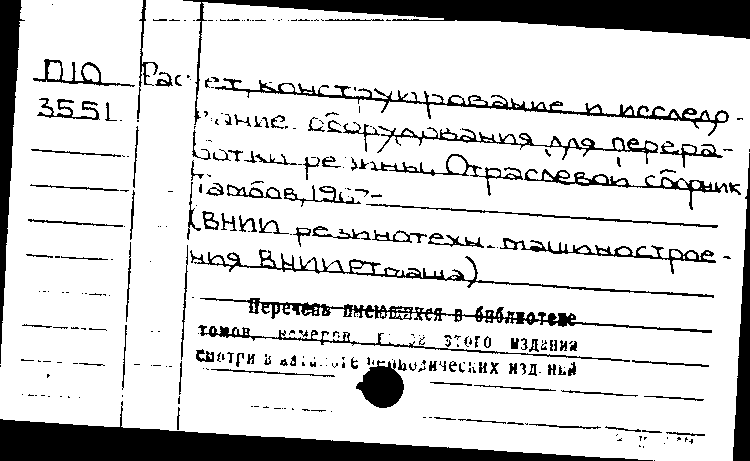 П10 Расчет, конструирование и исследо-
3551 вание оборудования для перера-
ботки резины. Отраслевой сборник.
Тамбов,
(ВНИИ резинотехн. машинострое-
ния ВНИИРТмаша)
Перечень имеющихся в библиотеке
томов, номеров, годов этого издания
смотри в каталоге периодических изданий